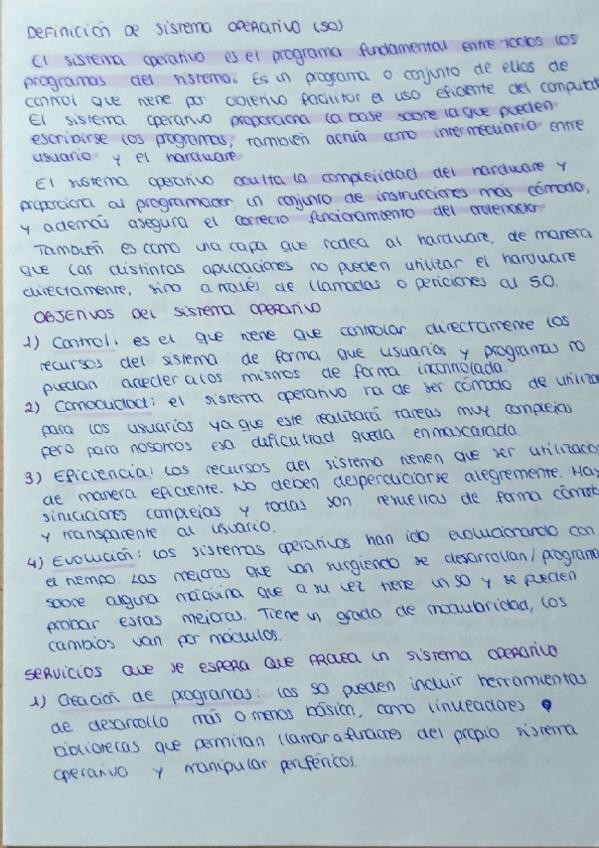 DEFINICIÓN DE SISTEMA OPERATIVO (SO)
El sistema operativo es el programa fundamental entre todos los
programas del sistema. Es un programa o conjunto de ellos de
control que tiene por objetivo facilitar el uso eficiente del computad
El sistema operativo proporciona la base sobre la que pueden
escribirse los programas, también actúa como intermediario entre
usuario y el hardware
El sistema operativo oculta la complejidad del hardware y
proporciona al programador un conjunto de instrucciones más cómodo,
y además asegura el correcto funcionamiento del ordenador
También es como una capa que rodea al hardware, de manera
que las distintas aplicaciones no pueden utilizar el hardware
directamente, sino a través de llamadas o peticiones al S.O.
OBJETIVOS DEL SISTEMA OPERATIVO
1) Control: es el que tiene que controlar directamente los
recursos del sistema de forma que usuarios y programas no
puedan acceder a los mismos de forma incontrolada.
2) Comodidad: el sistema operativo ha de ser cómodo de utilizar
para los usuarios ya que este realizará tareas muy complejas
pero para nosotros esa dificultad queda enmascarada.
3) Eficiencia: los recursos del sistema tienen que ser utilizados
de manera eficiente. No deben desperdiciarse alegremente. Hay
situaciones complejas y todas son resueltas de forma cómoda
y transparente al usuario.
4) Evolución: los sistemas operativos han ido evolucionando con
el tiempo. Las mejoras que van surgiendo se desarrollan/programa
sobre alguna máquina que a su vez tiene un SO y se pueden
probar estas mejoras. Tiene un grado de modularidad, los
cambios van por módulos.
SERVICIOS QUE SE ESPERA QUE PROVEA UN SISTEMA OPERATIVO
1) Creación de programas: los SO pueden incluir herramientas
de desarrollo más o menos básicas, como linueadores
bibliotecas que permitan llamar a funciones del propio sistema
operativo y manipular periféricos.